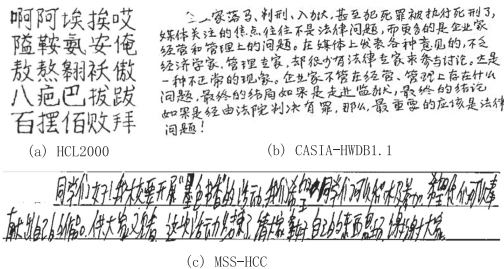 啊阿埃挨哎
隘鞍氨安俺
敖熬翱袄傲
八疤巴拔跋
百摆佰败拜
(a) HCL2000
企业家落马、判刑、入狱,甚至犯死罪被执行死刑了,
媒体关注的焦点往往不是法律问题,而更多的是企业家
经营和管理上的问题。在媒体上发表各种意见的,不乏
经济学家、管理专家,却很少有法律专家来参与讨论。这是
一种不正常的现象。企业家不管在经营、管理上存在什么
问题,最终的结局如果是走进监狱,最终的结论
如果是经由法院判决有罪,那么,最重要的应该是法律
问题!
(b) CASIA-HWDB1.1
同学们好!我校要开展"墨色书香"的活动,我们
自己的作品。供大家 自己的东西 谢谢大家
(c) MSS-HCC